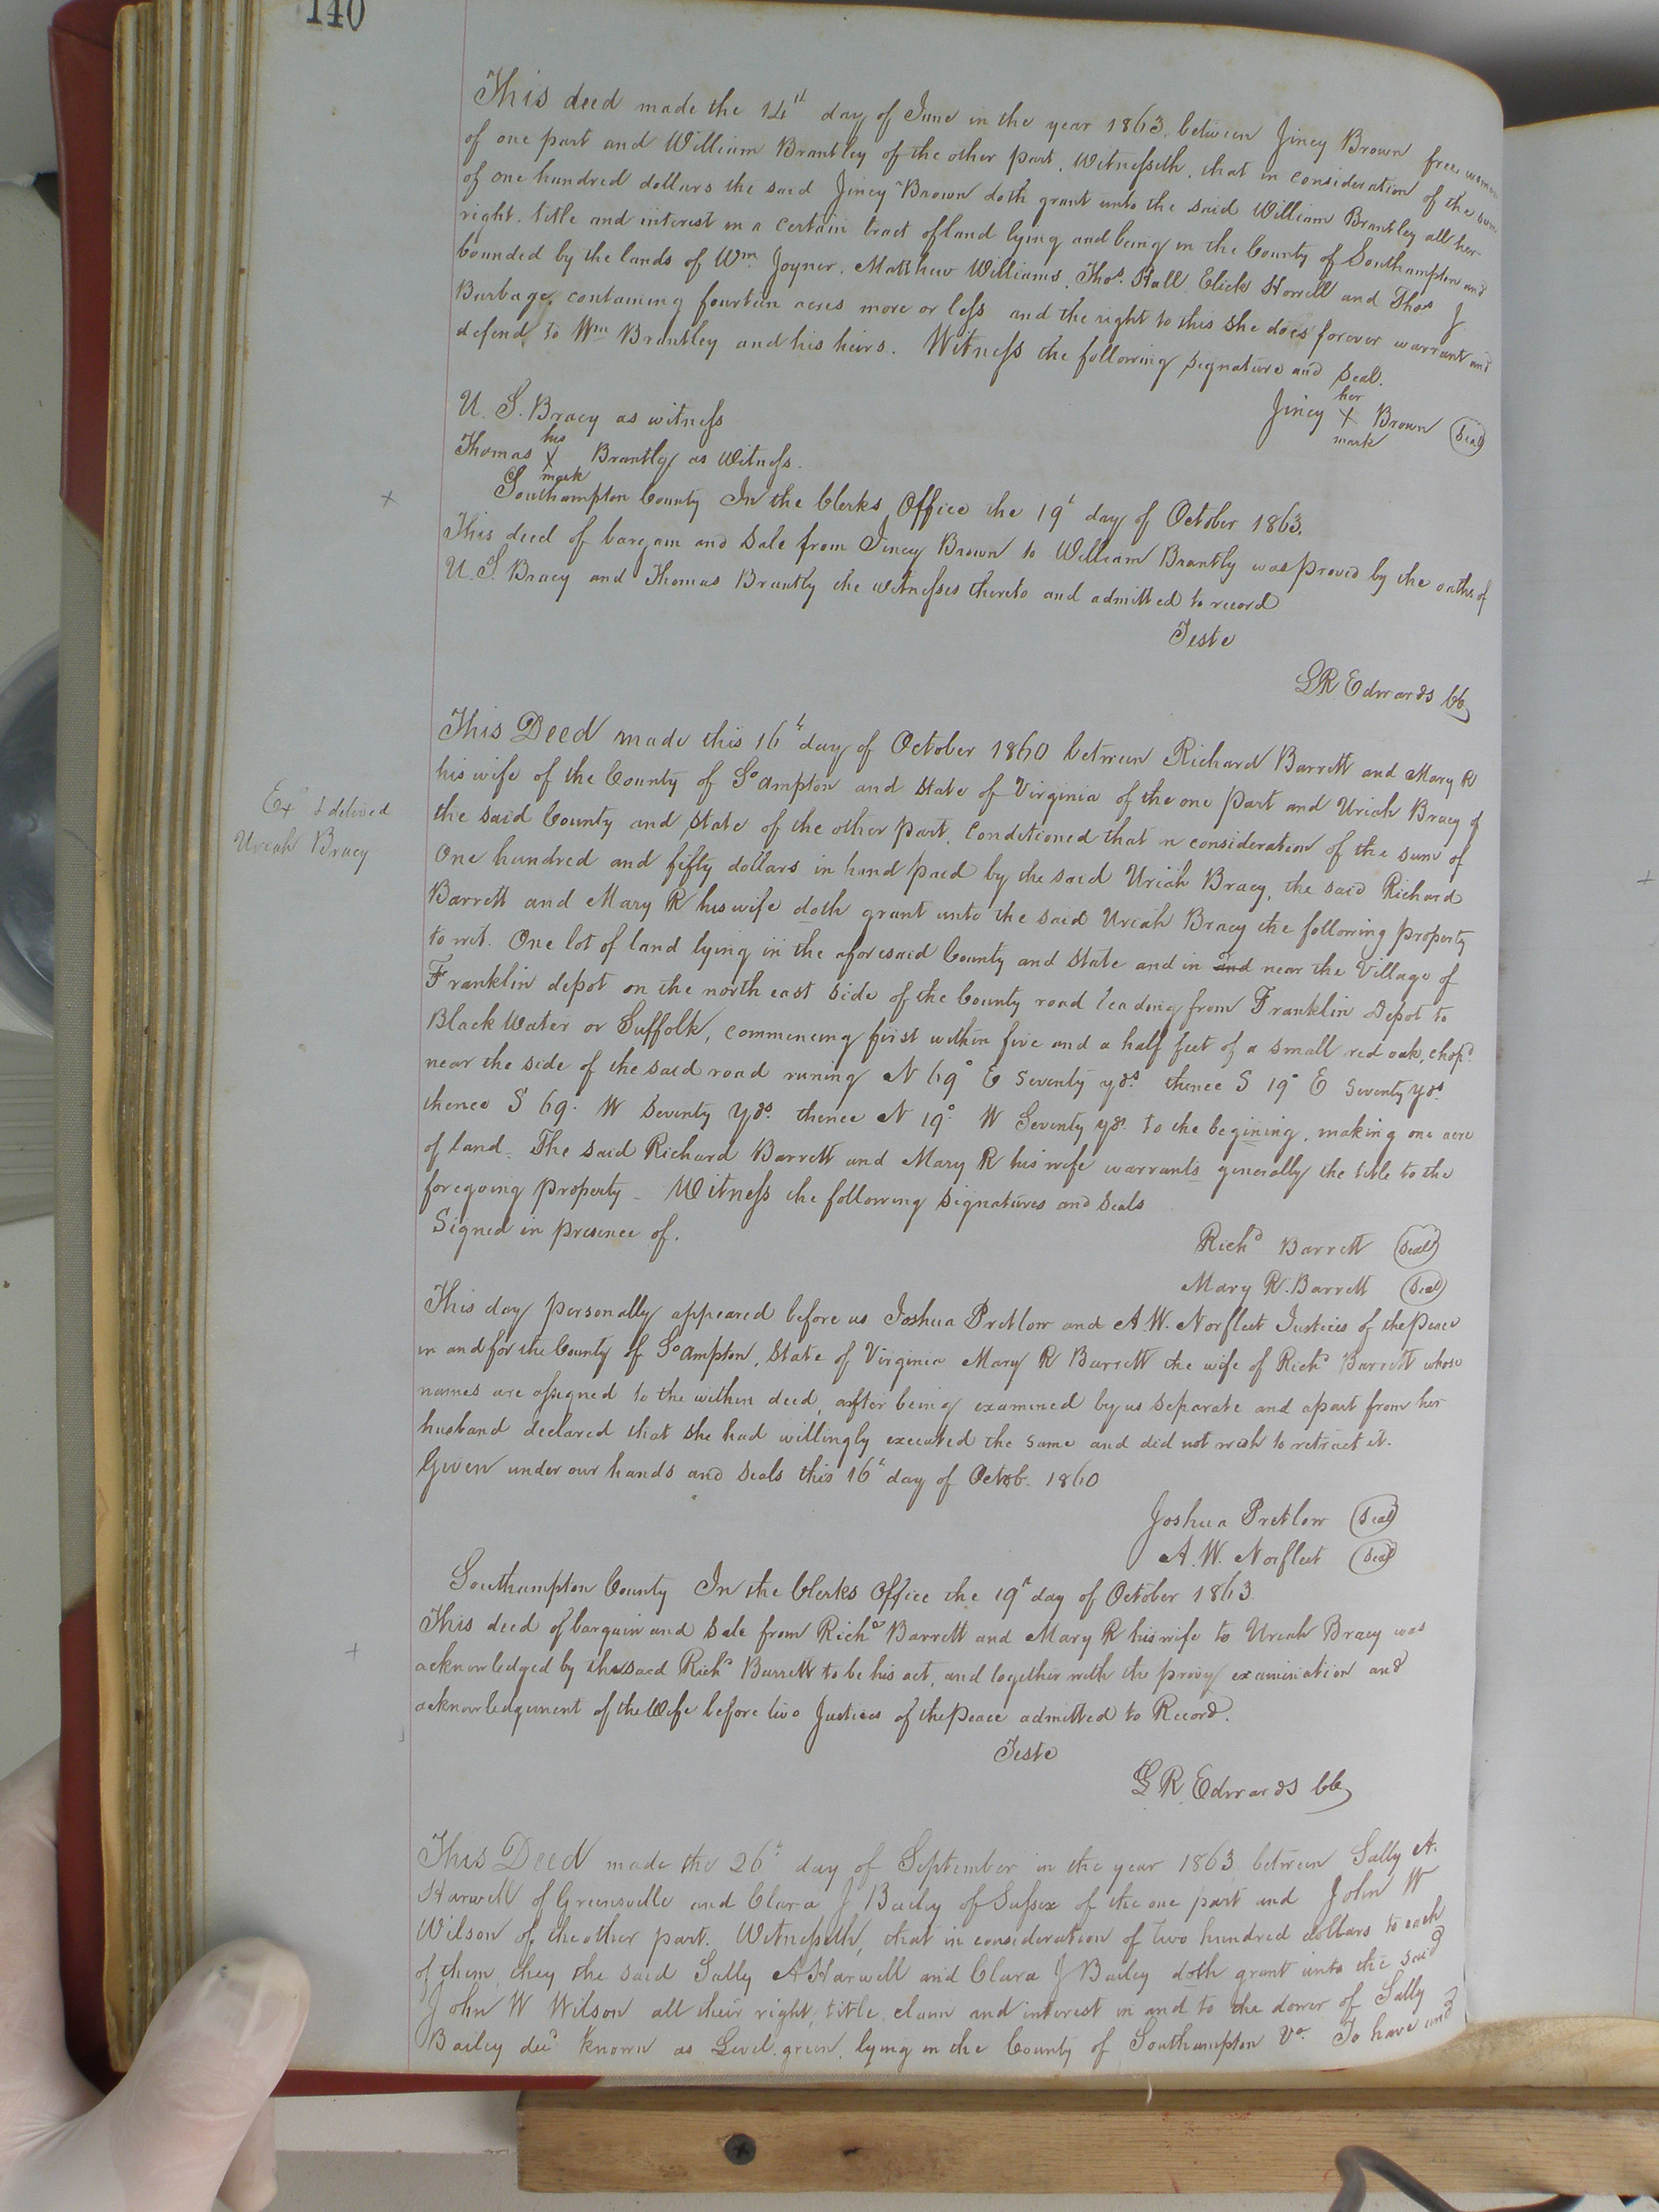 140
This deed made the 14th day of June in the year 1863, between Jincy Brown free woman
of one part and William Brantley of the other part, Witnesseth, that in consideration of the sum
of one hundred dollars the said Jincy Brown doth grant unto the said William Brantley all her
right, title and interest in a certain tract of land lying and being in the County of Southampton and
bounded by the lands of Wm Joyner, Matthew Williams, Thos. Hall, Elick Norvell and Thos J
Burbage, containing fourteen acres more or less and the right to this she does forever warrant and
defend, to Wm Brantley and his heirs. Witness the following signature and seal.
her
Jincy X Brown (Seal)
mark
U. S. Bracy as witness
his
Thomas X Brantly as Witness.
mark
Southampton County In the Clerks Office the 19t day of October 1863.
This deed of bargain and sale from Jincy Brown to William Brantly was proved by the oaths of
U. S. Bracy and Thomas Brantly the witnesses thereto and admitted to record
Teste
LR Edwards CC
This Deed made this 16th day of October 1860 between Richard Barrett and Mary R
his wife of the County of So ampton and State of Virginia of the one part and Uriah Bracy of
the said County and State of the other part, Conditioned that n consideration of the sum of
One hundred and fifty dollars in hand paid by the said Uriah Bracy, the said Richard
Barrett and Mary R his wife doth grant unto the said Uriah Bracy the following property
to wit. One lot of land lying in the aforesaid County and State and in and near the Village of
Franklin depot on the north east side of the County road leading from Franklin Depot to
Black Water or Suffolk, commencing first within five and a half feet of a small red oak, chopd
near the side of the said road runing N 69° E seventy yds. thence S 19° E seventy yds.
thence S 69. W seventy yds. thence N 19° W Seventy yds. to the begining, making one acre
of land. The said Richard Barrett and Mary R his wife warrants generally the title to the
foregoing property - Witness the following signatures and seals
Signed in presence of.
Richd Barrett (Seal)
Mary R. Barrett (Seal)
Ex & delived
Uriah Bracy
This day personally appeared before us Joshua Pretlow and A. W. Norfleet Justices of the peace
in and for the County of So Ampton, State of Virginia Mary R Barrett the wife of Richd Barrett whose
names are assigned to the within deed, after being examined by us separate and apart from her
husband declared that she had willingly executed the same and did not wish to retract it.
Given under our hands and seals this 16th day of Octob. 1860
Joshua Pretlow (Seal)
A. W. Norfleet (Seal)
Southampton County In the Clerks Office the 19th day of October 1863
This deed of bargain and sale from Richd Barrett and Mary R his wife to Uriah Bracy was
acknowledged by the said Richd Barrett to be his act, and together with the privy examination and
acknowledgement of the Wife before two Justices of the Peace admitted to Record.
Teste
LR Edwards CC
This Deed made the 26th day of September in the year 1863 between Sally A.
Harwell of Greensville and Clara J Bailey of Sussex of the one part and John W
Wilson of the other part. Witnesseth, that in consideration of two hundred dollars to each
of them, they the said Sally A Harwell and Clara J Bailey doth grant unto the said
John W Wilson all their right, title, claim and interest in and to the dower of Sally
Bailey decd known as Level green, lying in the County of Southampton Va To have and